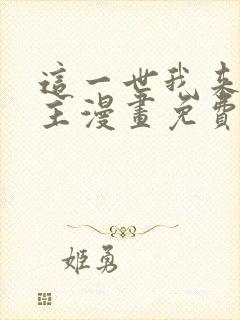 這一世我來
主漫畫免費
姬勇